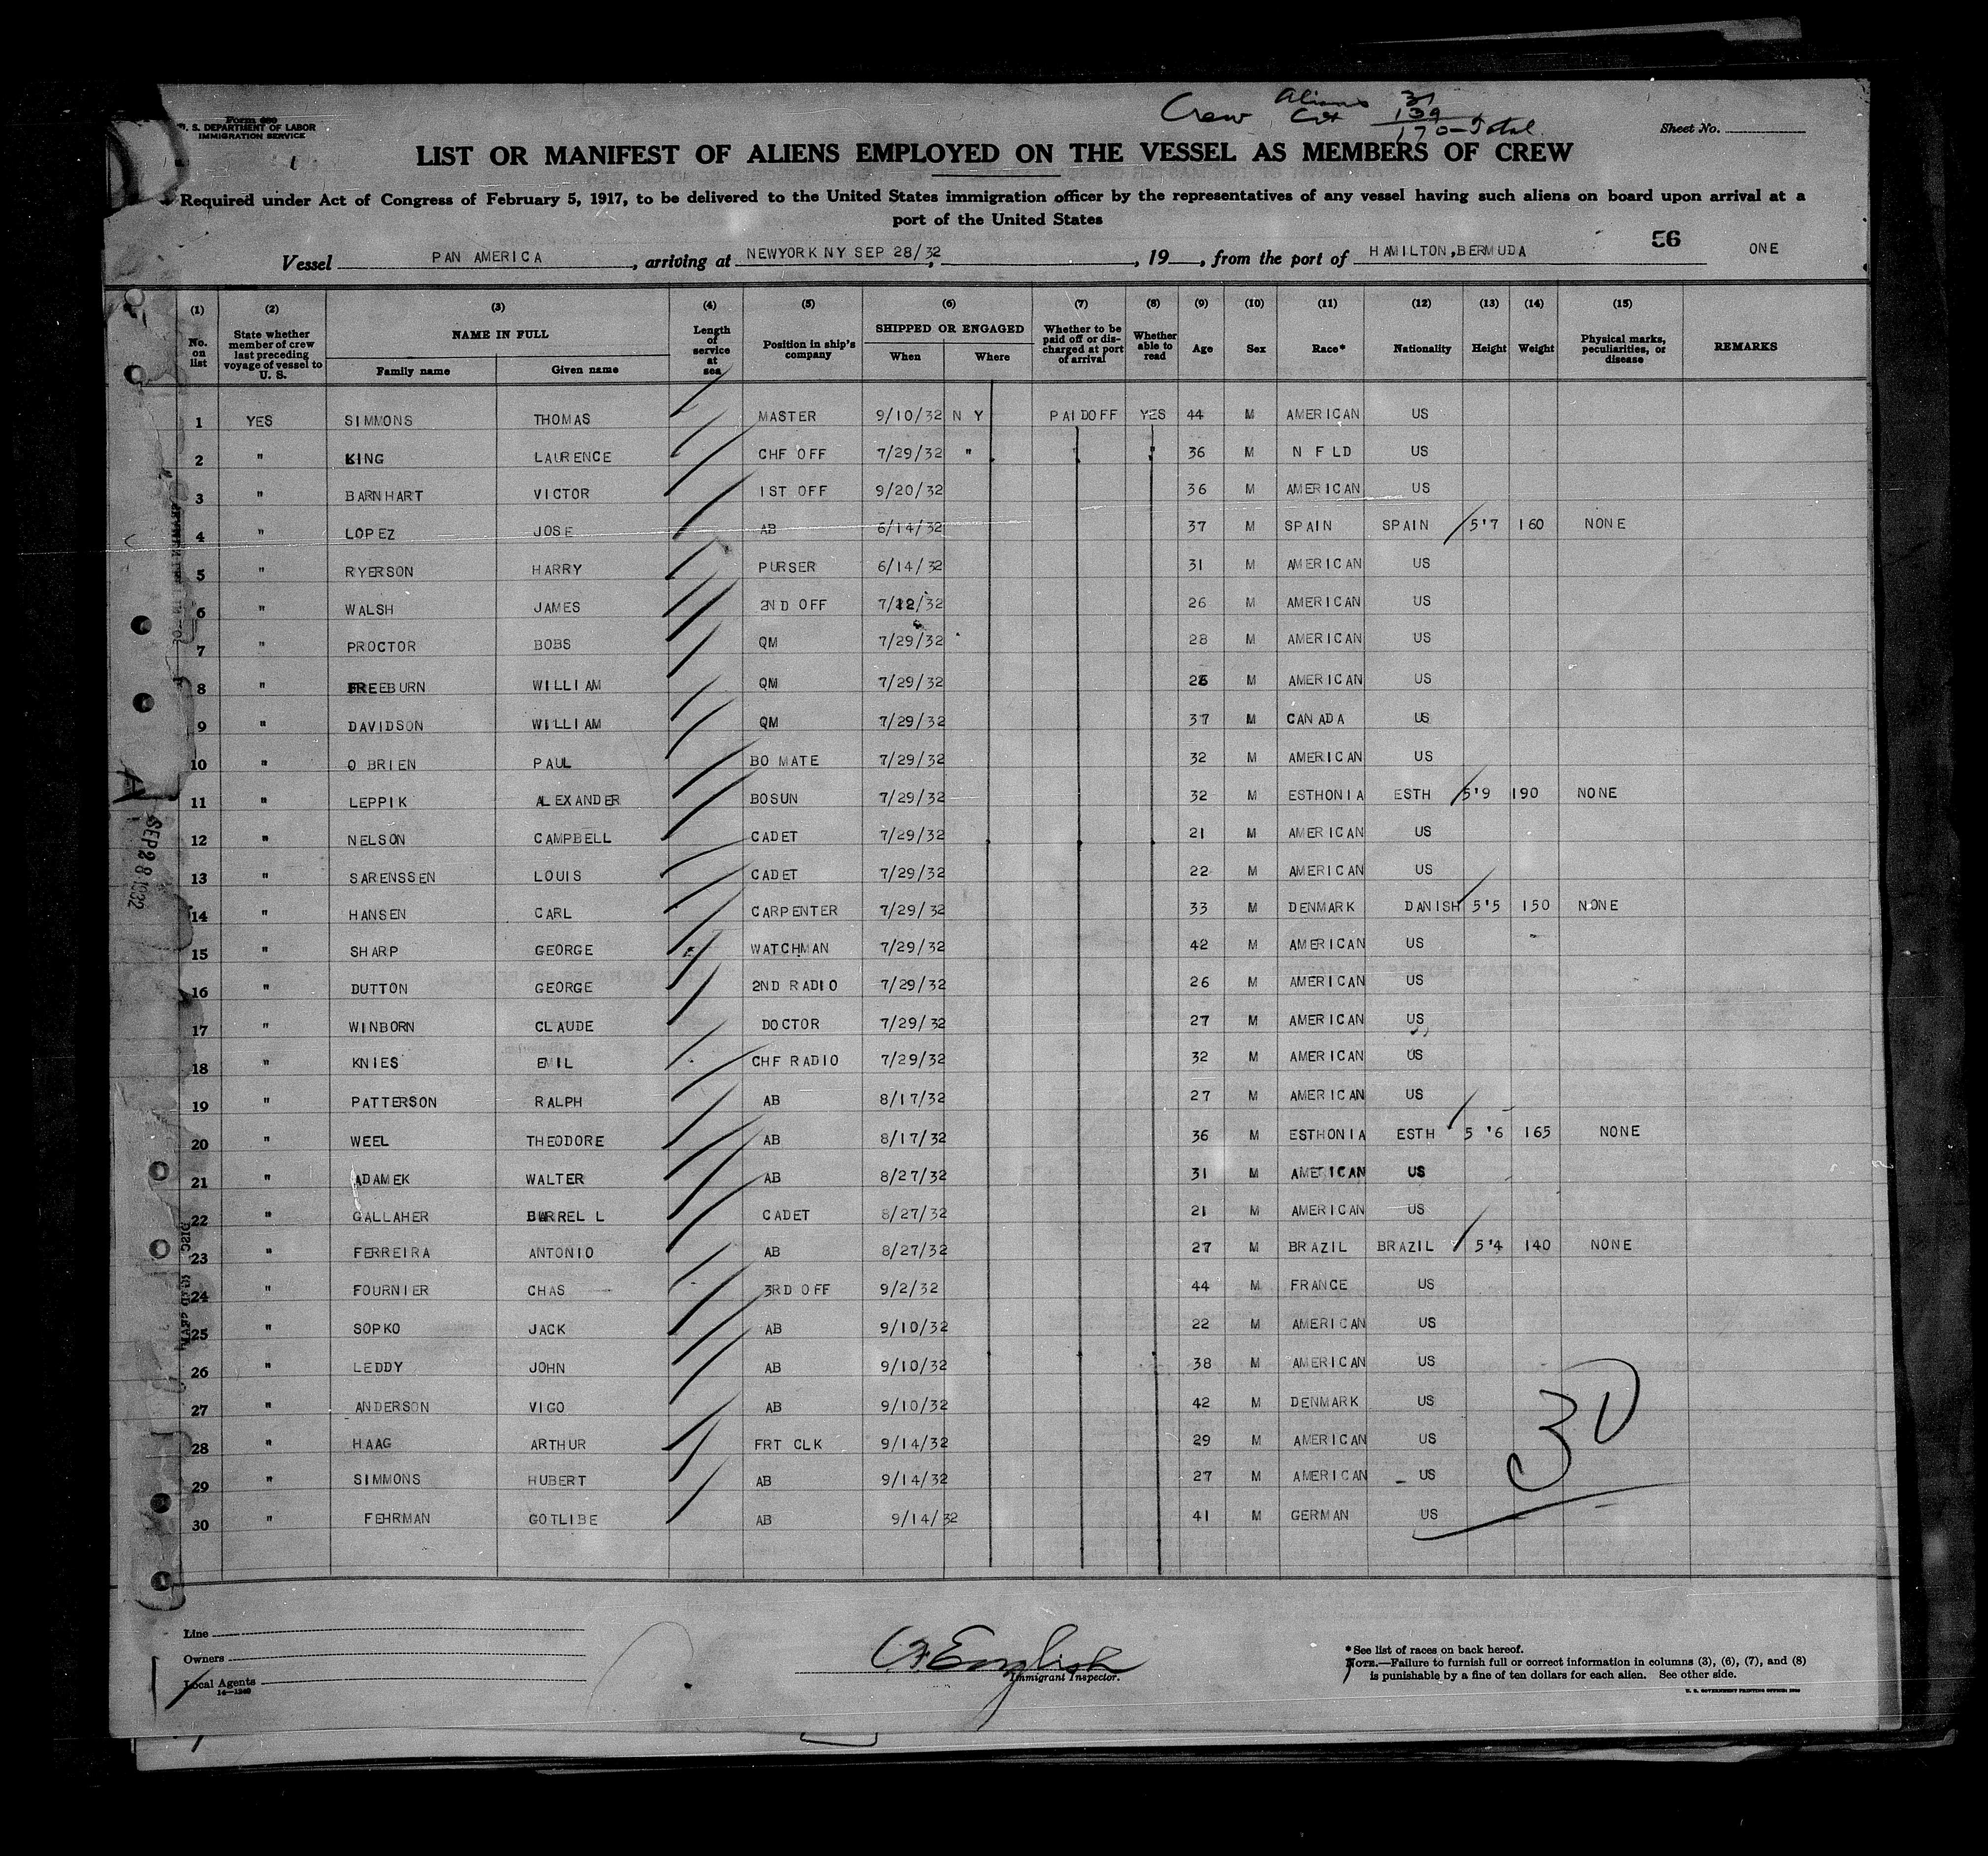 Crew Aliens 31
Cit 139
170 - Total
Form 680
U. S. DEPARTMENT OF LABOR
IMMIGRATION SERVICE
Sheet No.
LIST OR MANIFEST OF ALIENS EMPLOYED ON THE VESSEL AS MEMBERS OF CREW
Required under Act of Congress of February 5, 1917, to be delivered to the United States immigration officer by the representatives of any vessel having such aliens on board upon arrival at a
port of the United States
56
Vessel PAN AMERICA, arriving at NEWYORK NY SEP 28/32, 19, from the port of HAMILTON,BERMUDA ONE
(1) (2) (3) (4) (5) (6) (7) (8) (9) (10) (11) (12) (13) (14) (15)
No. on list State whether member of crew last preceding voyage of vessel to U. S. NAME IN FULL Family name Given name Length of service at sea Position in ship's company SHIPPED OR ENGAGED When Where Whether to be paid off or discharged at port of arrival Whether able to read Age Sex Race* Nationality Height Weight Physical marks, peculiarities, or disease REMARKS
1 YES SIMMONS THOMAS MASTER 9/10/32 N Y PAIDOFF YES 44 M AMERICAN US
2 " KING LAURENCE CHF OFF 7/29/32 " " 36 M N F LD US
3 " BARNHART VICTOR 1ST OFF 9/20/32 36 M AMERICAN US
4 " LOPEZ JOSE AB 6/14/32 37 M SPAIN SPAIN 5'7 160 NONE
5 " RYERSON HARRY PURSER 6/14/32 31 M AMERICAN US
6 " WALSH JAMES 2ND OFF 7/12/32 26 M AMERICAN US
7 " PROCTOR BOBS QM 7/29/32 28 M AMERICAN US
8 " FREEBURN WILLIAM QM 7/29/32 M AMERICAN US
9 " DAVIDSON WILLIAM QM 7/29/32 37 M CANADA US
10 " O BRIEN PAUL BO MATE 7/29/32 32 M AMERICAN US
11 " LEPPIK ALEXANDER BOSUN 7/29/32 32 M ESTHONIA ESTH 5'9 190 NONE
12 " NELSON CAMPBELL CADET 7/29/32 21 M AMERICAN US
13 " SARENSSEN LOUIS CADET 7/29/32 22 M AMERICAN US
14 " HANSEN CARL CARPENTER 7/29/32 33 M DENMARK DANISH 5'5 150 NONE
15 " SHARP GEORGE WATCHMAN 7/29/32 42 M AMERICAN US
16 " DUTTON GEORGE 2ND RADIO 7/29/32 26 M AMERICAN US
17 " WINBORN CLAUDE DOCTOR 7/29/32 27 M AMERICAN US
18 " KNIES EMIL CHF RADIO 7/29/32 32 M AMERICAN US
19 " PATTERSON RALPH AB 8/17/32 27 M AMERICAN US
20 " WEEL THEODORE AB 8/17/32 36 M ESTHONIA ESTH 5 '6 165 NONE
21 " ADAMEK WALTER AB 8/27/32 31 M AMERICAN US
22 " GALLAHER BURRELL CADET 8/27/32 21 M AMERICAN US
23 " FERREIRA ANTONIO AB 8/27/32 27 M BRAZIL BRAZIL 5'4 140 NONE
24 " FOURNIER CHAS 3RD OFF 9/2/32 44 M FRANCE US
25 " SOPKO JACK AB 9/10/32 22 M AMERICAN US
26 " LEDDY JOHN AB 9/10/32 38 M AMERICAN US
27 " ANDERSON VIGO AB 9/10/32 42 M DENMARK US
28 " HAAG ARTHUR FRT CLK 9/14/32 29 M AMERICAN US
29 " SIMMONS HUBERT AB 9/14/32 27 M AMERICAN US
30 " FEHRMAN GOTLIBE AB 9/14/32 41 M GERMAN US
30
SEP 28 1932
Line
Owners
Local Agents
14—1240
English
Immigrant Inspector.
*See list of races on back hereof.
NOTE.—Failure to furnish full or correct information in columns (3), (6), (7), and (8)
is punishable by a fine of ten dollars for each alien. See other side.